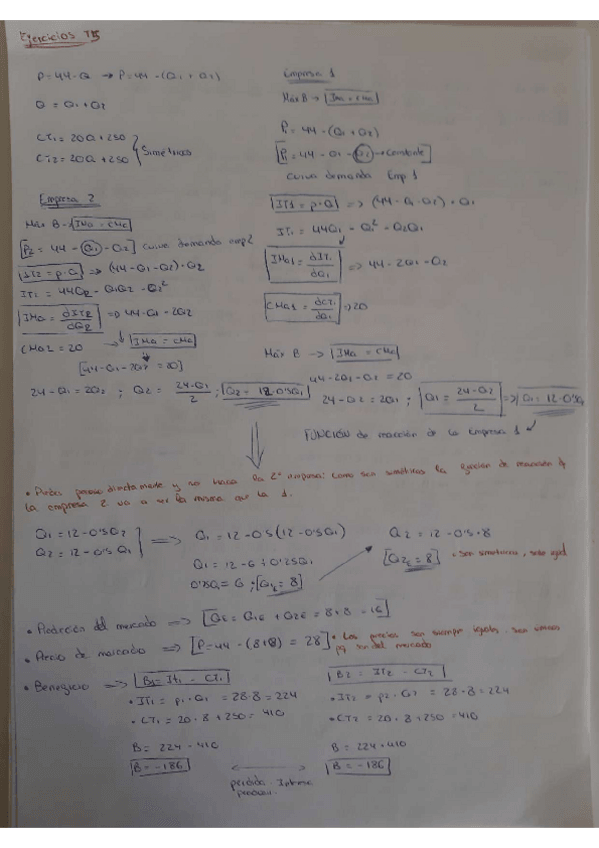 Ejercicios T5
P=44-Q → P=44-(Q1+Q2)
Q = Q1+Q2
CT1= 20Q+250
CT2= 20Q+250 } Simétricos
Empresa 1
Máx B → IMa = CMa
P1= 44-(Q1+Q2)
[P1= 44-Q1-Q2 → constante]
curva demanda Emp 1
IT1= P·Q => (44-Q1-Q2)·Q1
IT1= 44Q1-Q1²-Q2Q1
IMa1= dIT1/dQ1 => 44-2Q1-Q2
CMa1= dCT1/dQ1 => 20
Máx B → IMa = CMa
44-2Q1-Q2=20
24-Q2=2Q1; Q1= 24-Q2/2 => Q1= 12-0'5Q2
FUNCIÓN de reacción de la Empresa 1
Empresa 2
Máx B → IMa = CMa
[P2= 44-Q1-Q2] curva demanda emp2
IT2= P·Q => (44-Q1-Q2)·Q2
IT2= 44Q2-Q1Q2-Q2²
IMa= dIT2/dQ2 => 44-Q1-2Q2
CMa2=20 → IMa = CMa
[44-Q1-2Q2=20]
24-Q1=2Q2; Q2= 24-Q1/2; Q2= 12-0'5Q1
la empresa 2 va a ser la misma que la 1.
Q1=12-0'5Q2
Q2=12-0'5Q1 } => Q1=12-0'5(12-0'5Q1)
Q1=12-6+0'25Q1
0'75Q1=6; [Q1E=8]
Q2=12-0'5·8
[Q2E=8]
• Producción del mercado => [QE=Q1E+Q2E=8+8=16]
• Precio de mercado => [P=44-(8+8)=28] • Los precios son siempre iguales, son únicos
del mercado
• Beneficio => B1= IT1-CT1
• IT1= P1·Q1=28·8=224
• CT1=20·8+250=410
B=224-410
B=-186
B2= IT2-CT2
• IT2=P2·Q2=28·8=224
• CT2=20·8+250=410
B=224-410
B=-186